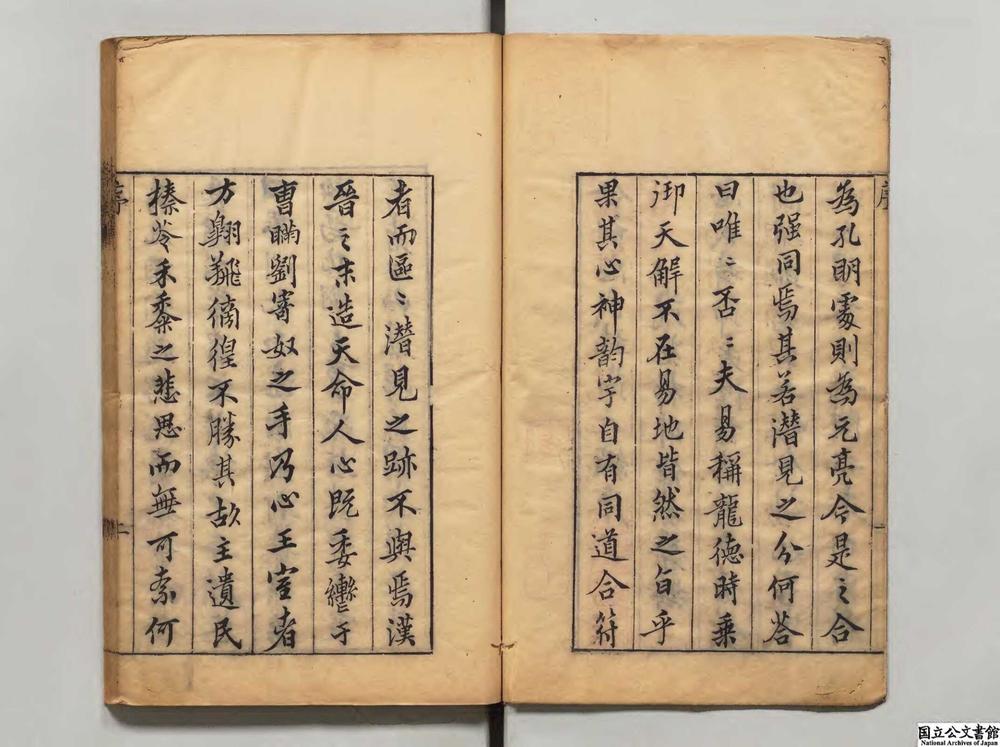 序
為孔明處則為元亮今是之合
也强同焉其若潛見之分何答
曰唯〻否〻夫易稱龍德時乗
御天解不在易地皆然之旨乎
果其心神韵宇自有同道合符
者而區〻潛見之跡不與焉漢
晉之末造天命人心既委轡于
曹瞞劉寄奴之手乃心王室者
方翱翔徜徨不勝其故主遺民
榛苓禾黍之悲思而無可柰何
序
国立公文書館
National Archives of Japan